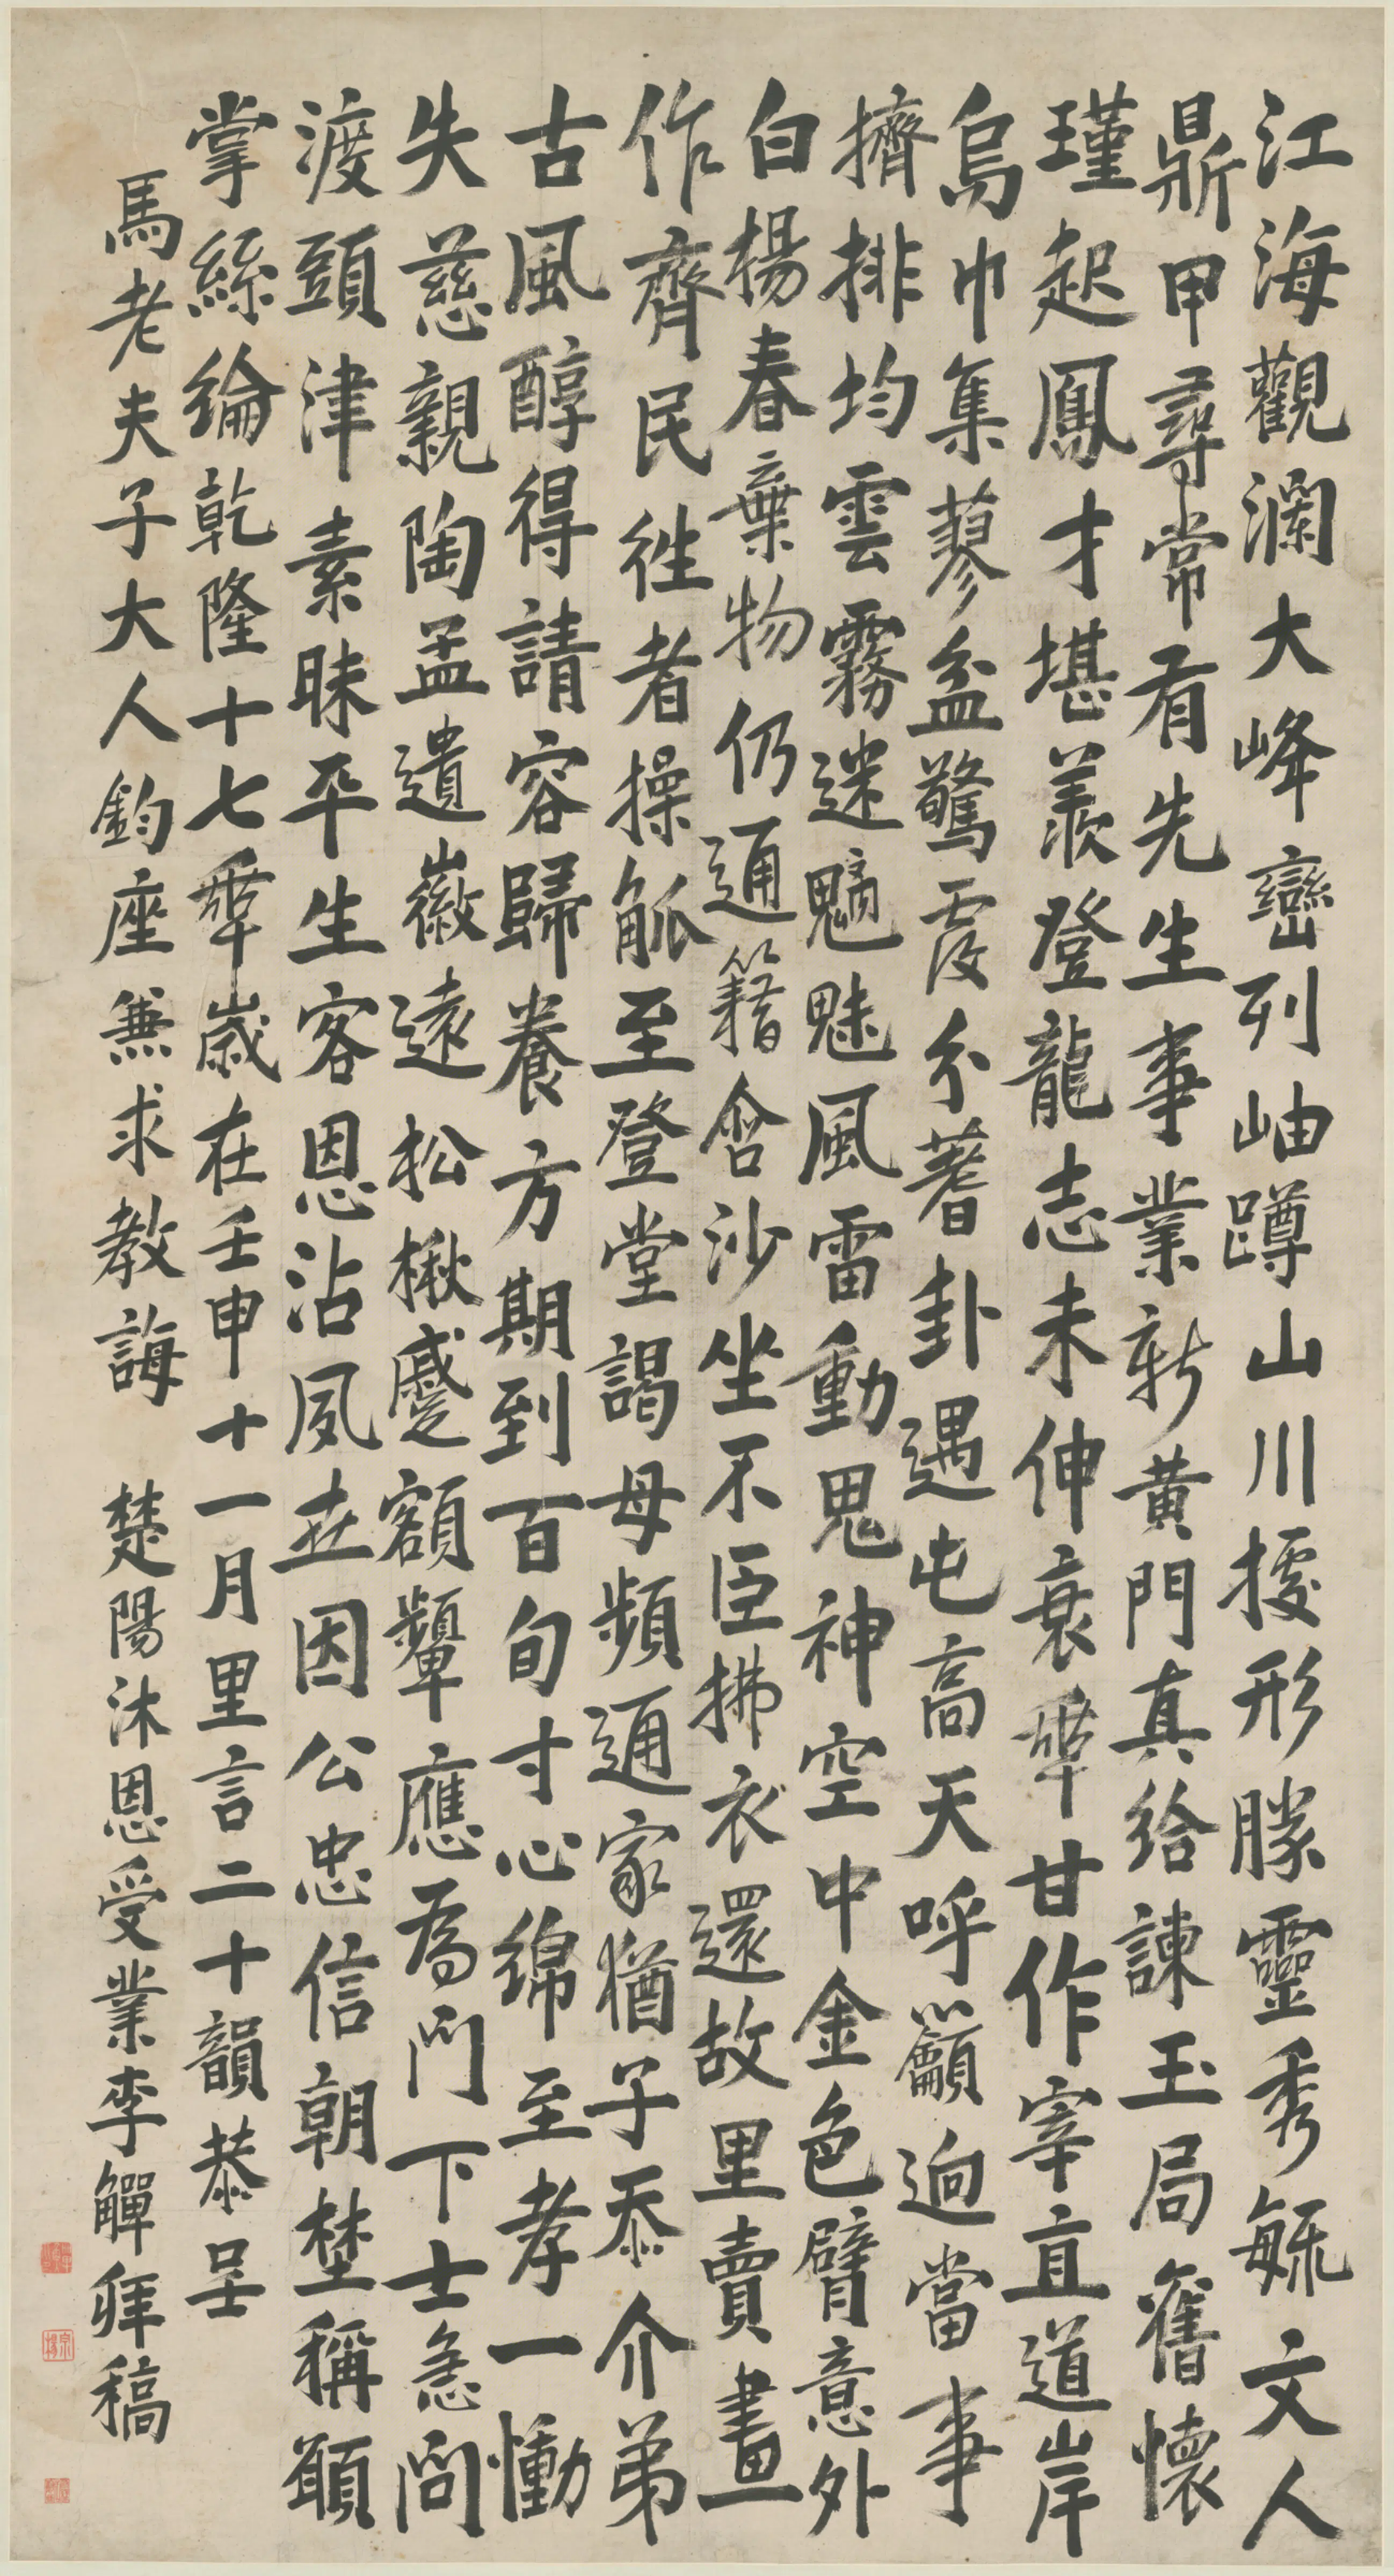 江海觀瀾大峰巒列岫蹲山川據形勝靈秀毓文人
鼎甲尋常有先生事業新黃門真給諫玉局舊懷
瑾起鳳才堪羨登龍志未伸衰年甘作宰直道岸
烏巾集蓼盆驚覆分蓍卦遇屯高天呼籲迥當事
擠排均雲霧迷魑魅風雷動鬼神空中金色臂意外
白楊春棄物仍通籍含沙坐不臣拂衣還故里賣畫
作齊民往者操觚至登堂謁母頻通家猶子忝介弟
古風醇得請容歸養方期到百旬寸心綿至孝一慟
失慈親陶孟遺徽遠松楸蹙額顰應為門下士急問
渡頭津素昧平生客恩沾夙世因公忠信朝埜稱頤
掌絲綸乾隆十七年歲在壬申十一月里言二十韻恭呈
馬老夫子大人鈞座兼求教誨 楚陽沐恩受業李觶拜稿